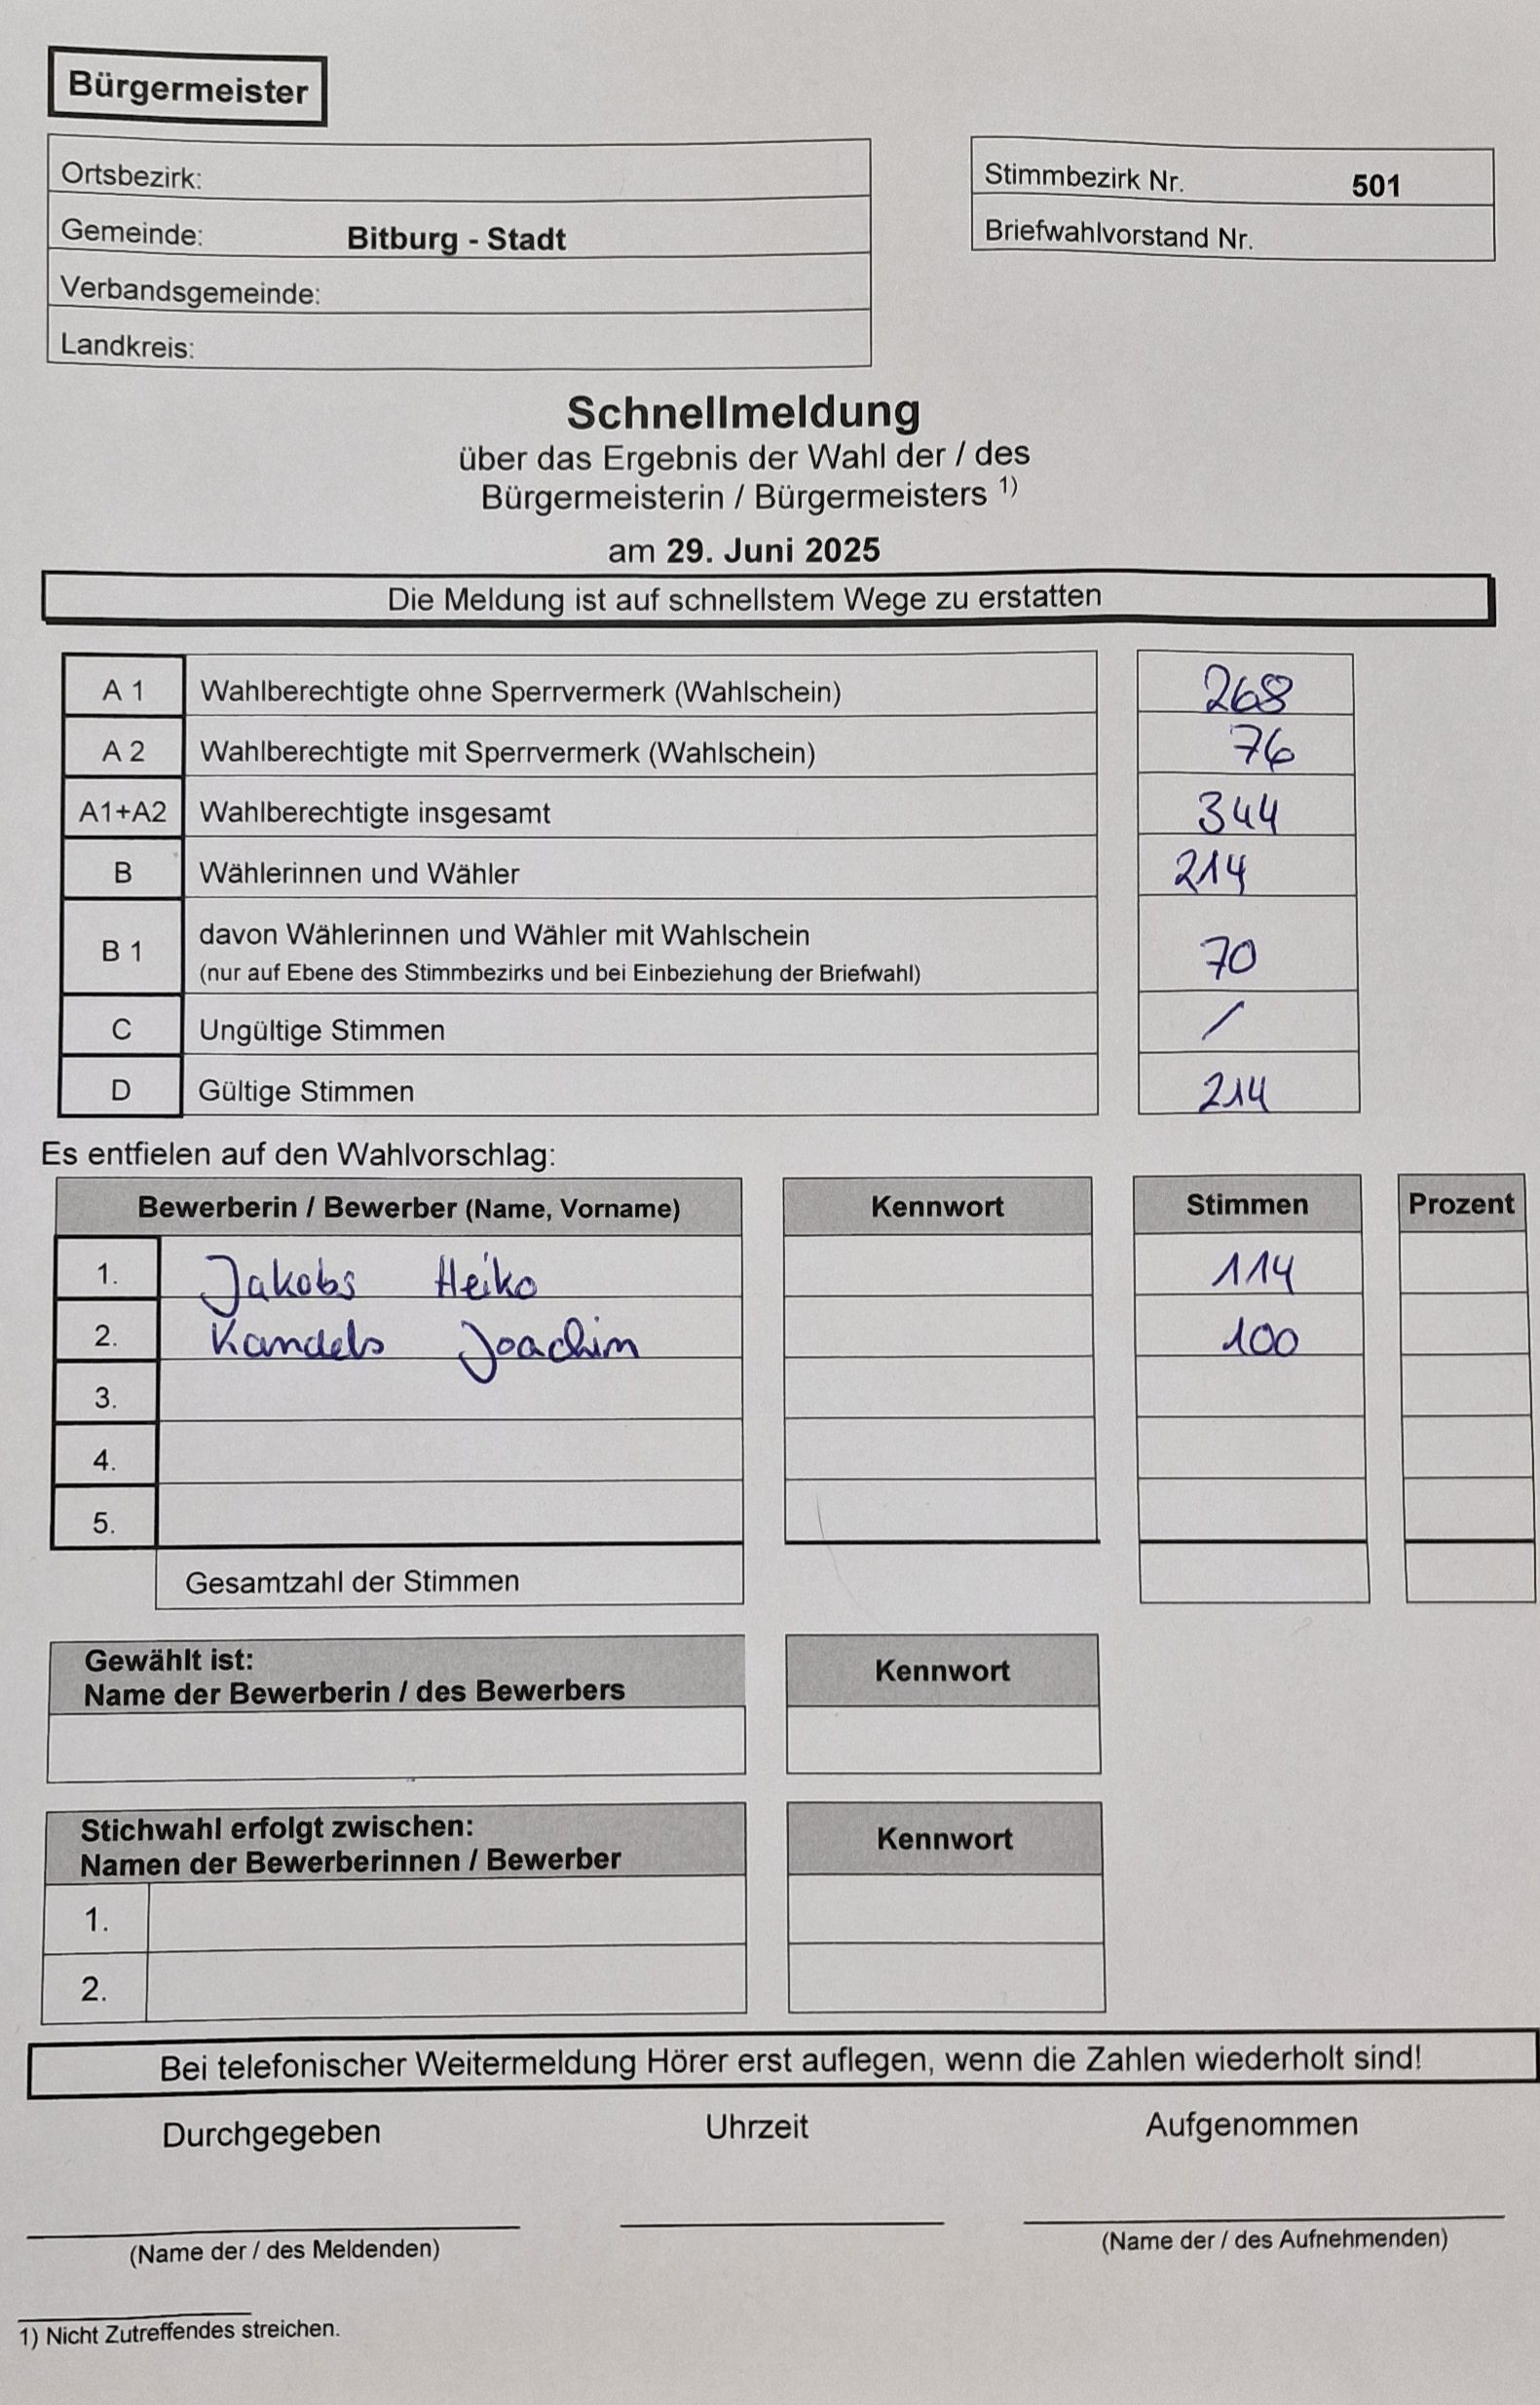 Bürgermeister
Ortsbezirk:
Gemeinde: Bitburg - Stadt
Verbandsgemeinde:
Landkreis:
Stimmbezirk Nr. 501
Briefwahlvorstand Nr.
Schnellmeldung
über das Ergebnis der Wahl der / des
Bürgermeisterin / Bürgermeisters 1)
am 29. Juni 2025
Die Meldung ist auf schnellstem Wege zu erstatten
A 1 Wahlberechtigte ohne Sperrvermerk (Wahlschein) 268
A 2 Wahlberechtigte mit Sperrvermerk (Wahlschein) 76
A1+A2 Wahlberechtigte insgesamt 344
B Wählerinnen und Wähler 214
B 1 davon Wählerinnen und Wähler mit Wahlschein 70
(nur auf Ebene des Stimmbezirks und bei Einbeziehung der Briefwahl)
C Ungültige Stimmen /
D Gültige Stimmen 214
Es entfielen auf den Wahlvorschlag:
Bewerberin / Bewerber (Name, Vorname) Kennwort Stimmen Prozent
1. Jakobs Heiko 114
2. Kandels Joachim 100
3.
4.
5.
Gesamtzahl der Stimmen
Gewählt ist:
Name der Bewerberin / des Bewerbers
Kennwort
Stichwahl erfolgt zwischen:
Namen der Bewerberinnen / Bewerber
Kennwort
1.
2.
Bei telefonischer Weitermeldung Hörer erst auflegen, wenn die Zahlen wiederholt sind!
Durchgegeben Uhrzeit Aufgenommen
(Name der / des Meldenden) (Name der / des Aufnehmenden)
1) Nicht Zutreffendes streichen.